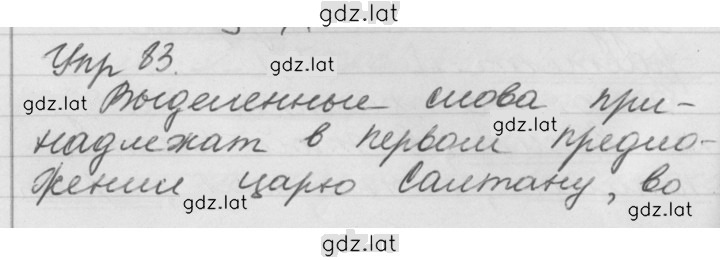 gdz.lat
Упр 83.
gdz.lat
gdz.lat Выделенные слова при-
надлежат в первом предло-
gdz.lat
жении царю Салтану, во
gdz.lat gdz.lat
gdz.lat